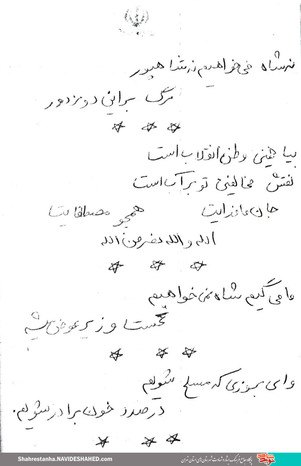 نه شاه می خواهیم نه شاهپور
مرگ بر این دو مزدور
بپا خینی وطن انقلاب است
نقش مخالفینی تو بر آب است
جان ما فدایت همچو مصطفایت
الله والله نصر من الله
ما می گیم شاه نمی خواهیم
نخست وزیر عوض میشه
وای بروزی که مسلح شویم
در صدد خون برادر شویم.
Shahrestanha.NAVIDESHAHED.com